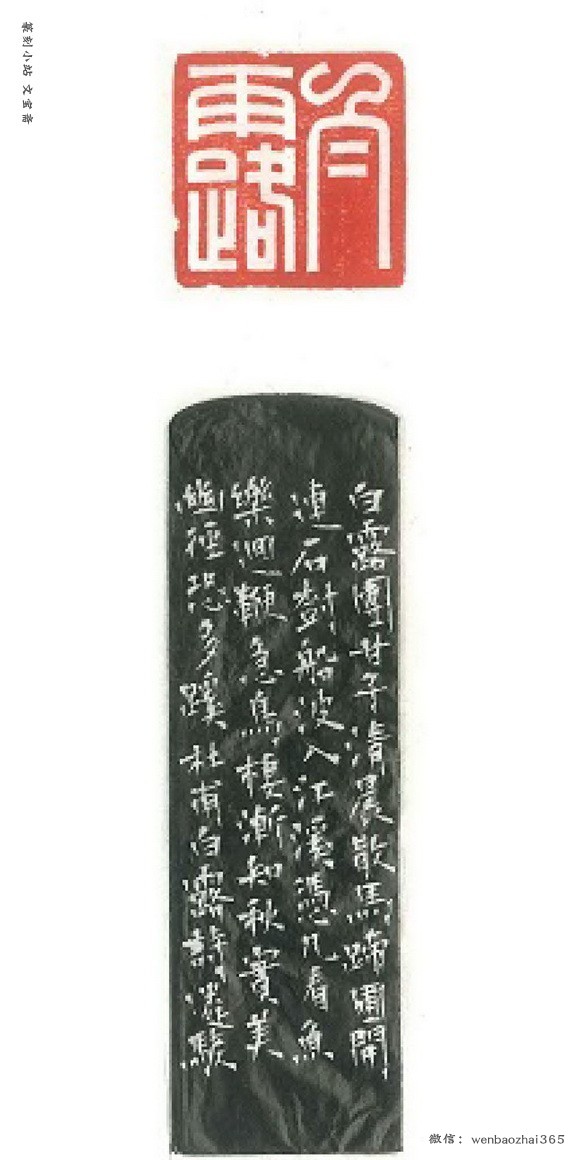 篆刻小站 文宝斋
露
白露團甘子清晨散馬蹄圃開
連石樹船渡入江溪憑几看魚
樂迴鞭急鳥棲漸知秋實美
幽徑恐多蹊杜甫白露詩
微信：wenbaozhai365